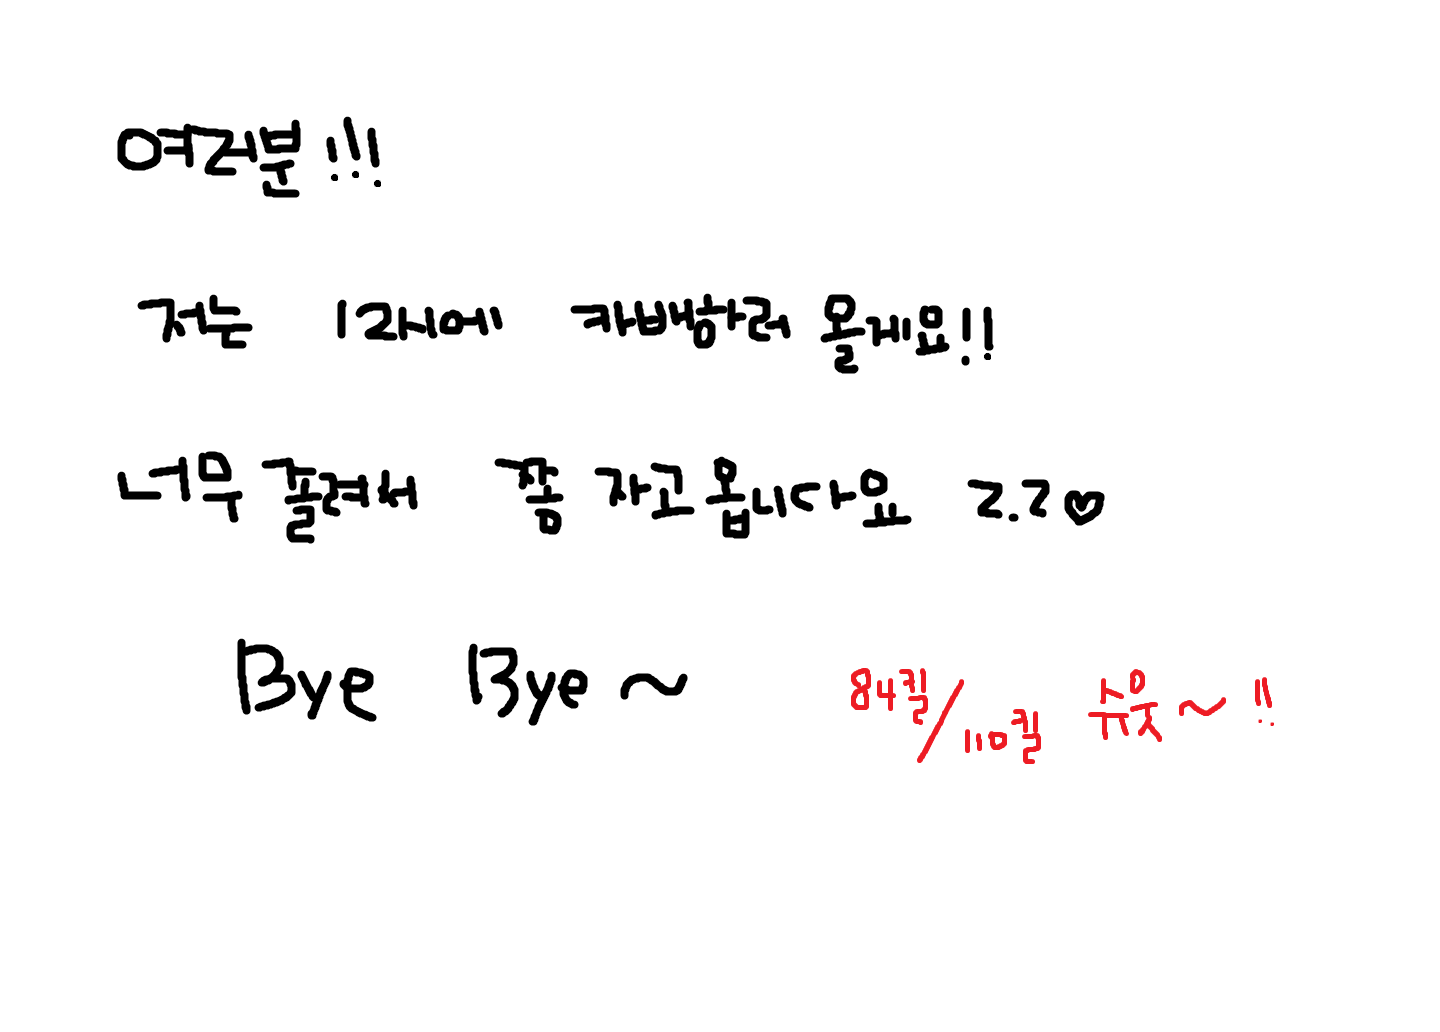 여러분!!!
저는 12시에 카배하러 올게요!!
너무 졸려서 쫌 자고 옵니다요 2.2♡
Bye Bye~
84킬/110킬 슈웃~!!